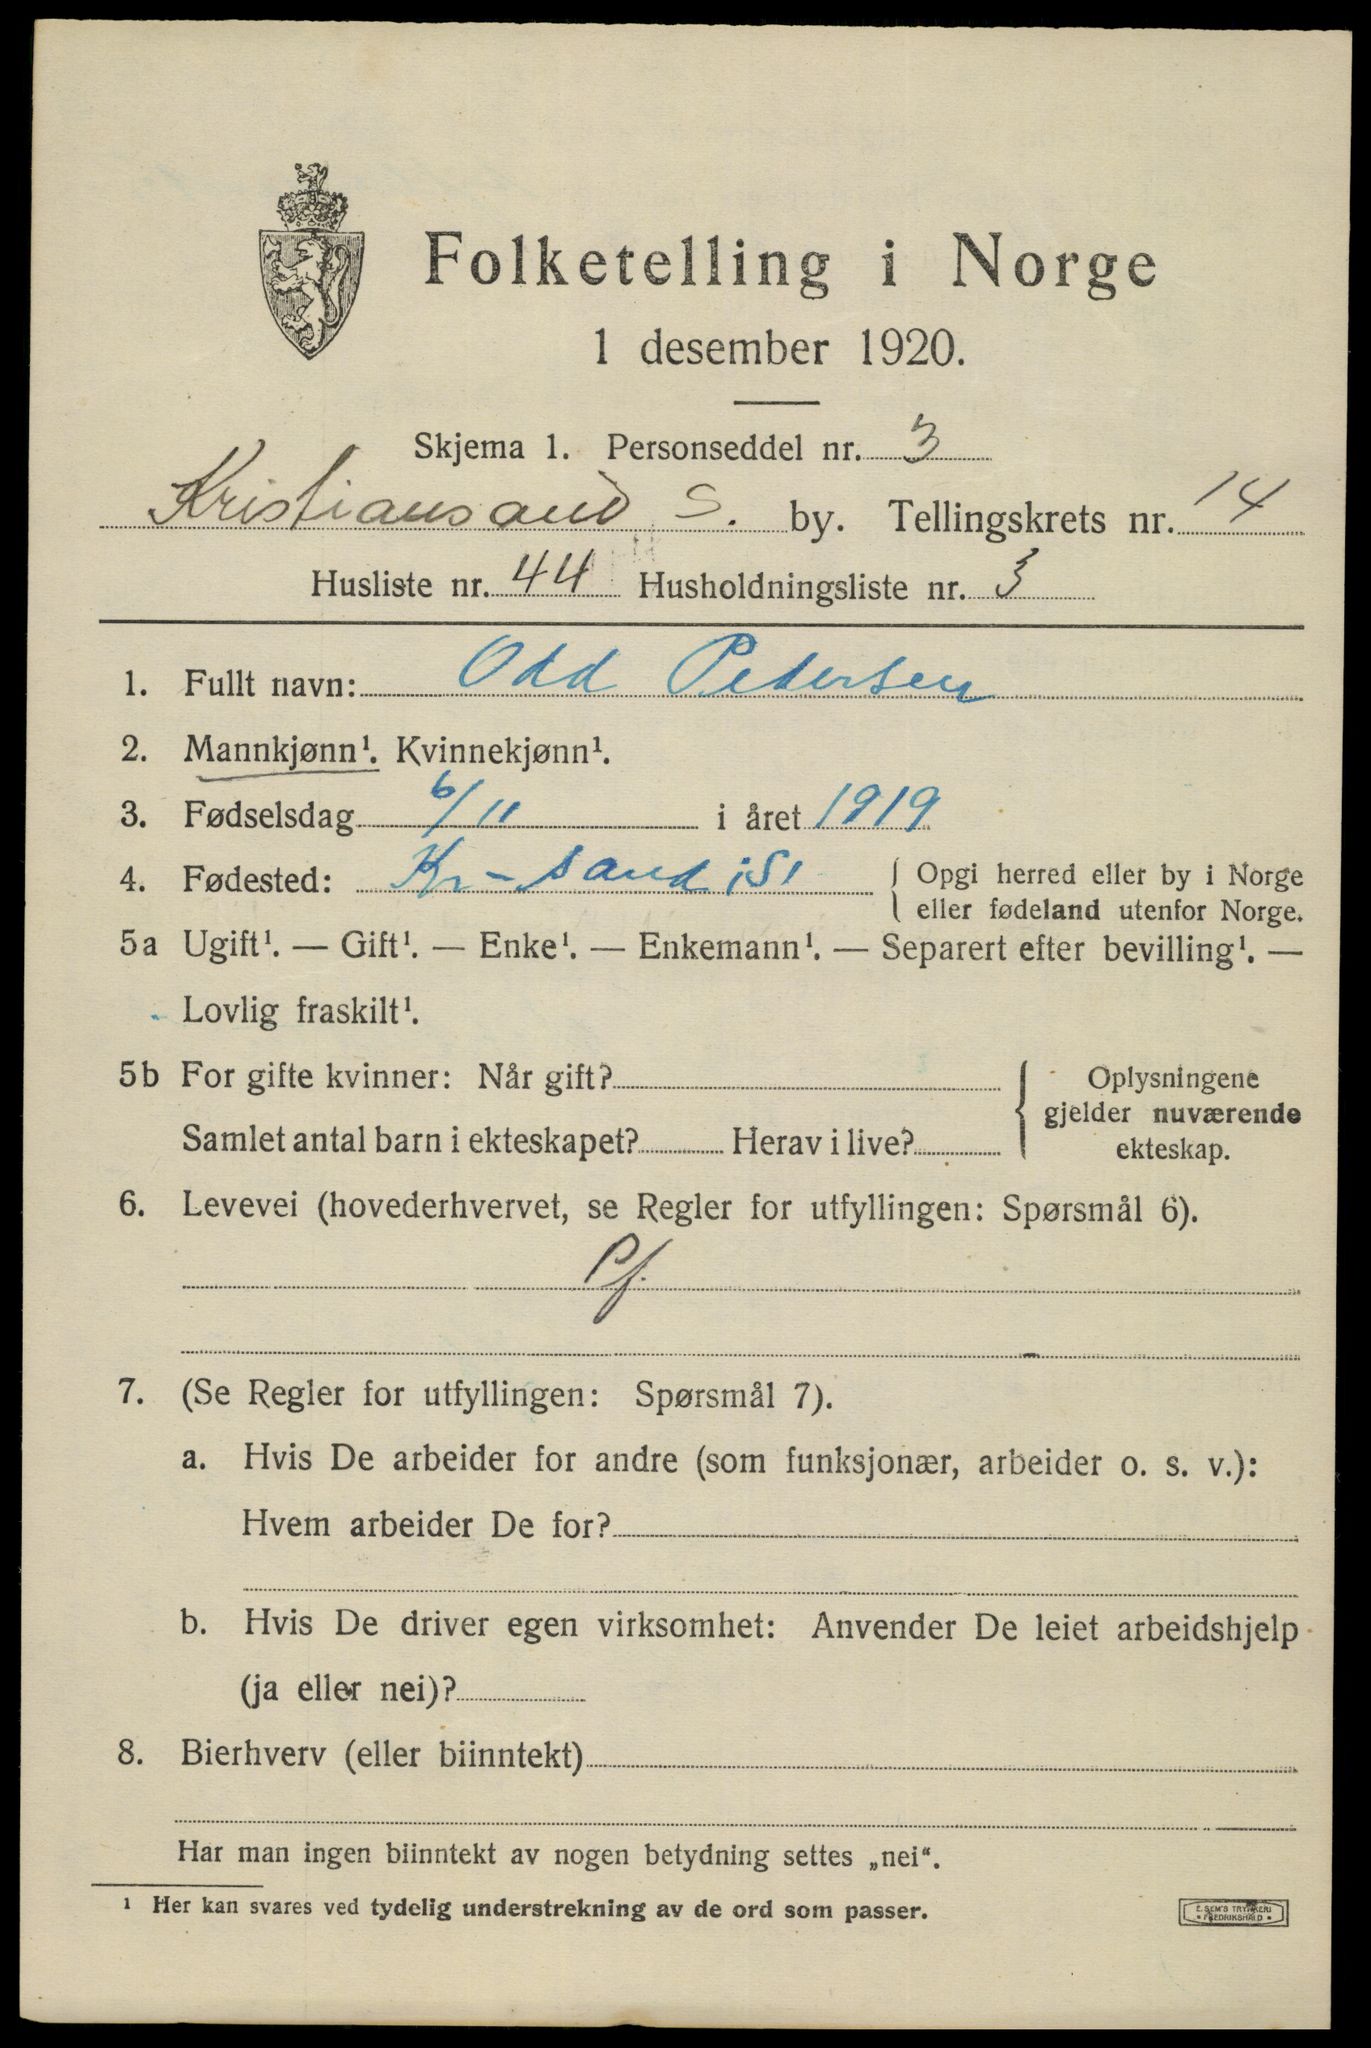 Folketelling i Norge
1 desember 1920.
Skjema 1. Personseddel nr. 3
Kristiansand S. by. Tellingskrets nr. 14
Husliste nr. 44 Husholdningsliste nr. 3
1. Fullt navn: Odd Pedersen
2. Mannkjønn¹. Kvinnekjønn¹.
3. Fødselsdag 6/11 i året 1919
4. Fødested: Kr-sand S. { Opgi herred eller by i Norge
eller fødeland utenfor Norge.
5a Ugift¹. — Gift¹. — Enke¹. — Enkemann¹. — Separert efter bevilling¹. —
Lovlig fraskilt¹.
5b For gifte kvinner: Når gift?
Samlet antal barn i ekteskapet? Herav i live?
{ Oplysningene
gjelder nuværende
ekteskap.
6. Levevei (hovederhvervet, se Regler for utfyllingen: Spørsmål 6).
Pf.
7. (Se Regler for utfyllingen: Spørsmål 7).
a. Hvis De arbeider for andre (som funksjonær, arbeider o. s. v.):
Hvem arbeider De for?
b. Hvis De driver egen virksomhet: Anvender De leiet arbeidshjelp
(ja eller nei)?
8. Bierhverv (eller biinntekt)
Har man ingen biinntekt av nogen betydning settes „nei“.
¹ Her kan svares ved tydelig understrekning av de ord som passer.
E. SEM'S TRYKKERI
• FREDRIKSHALD •